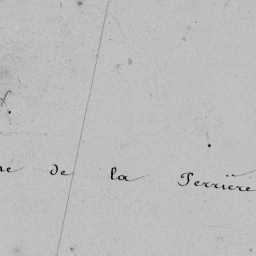 de la Perrière